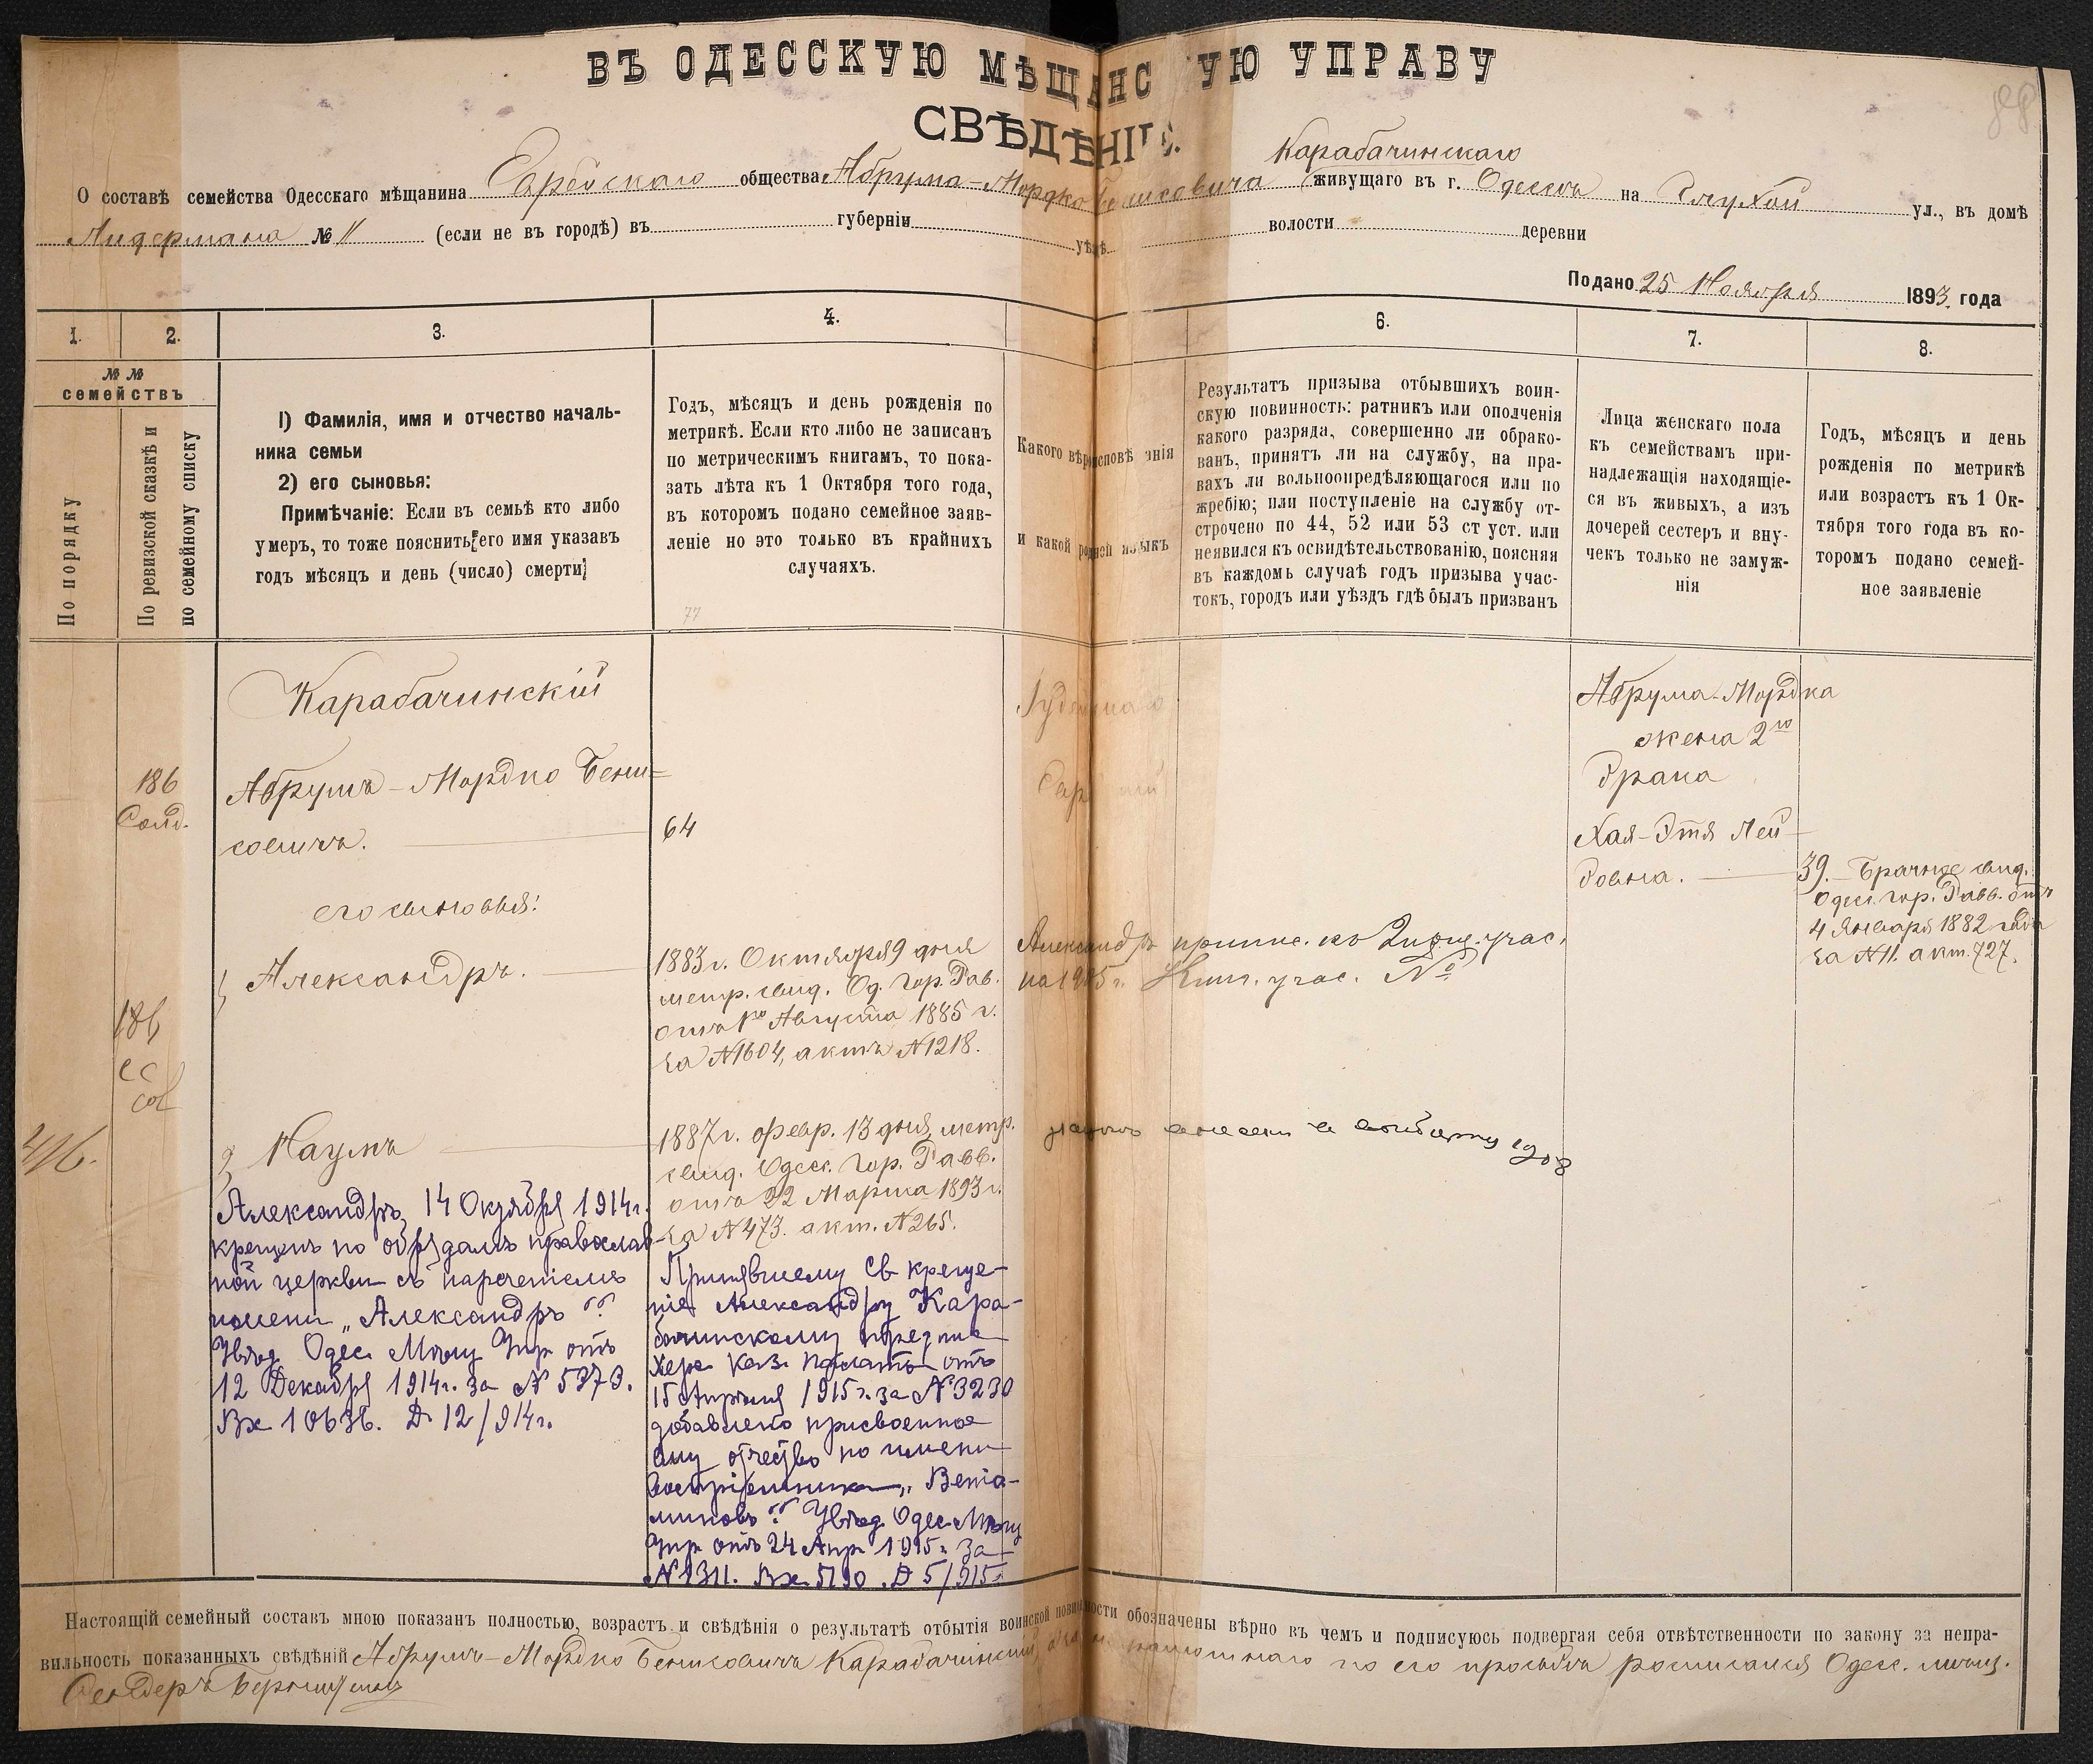 ВЪ ОДЕССКУЮ МѢЩАНС УЮ УПРАВУ
СВѢДѢНІЕ.
Карабачинскаго
О составѣ семейства Одесскаго мѣщанина Еврейскаго общества Абрума-Мордко Бенисовича живущаго въ г. Одессѣ на Глухой ул., въ домѣ
Лидермана № 11 (если не въ городѣ) въ губерніи уѣздѣ волости деревни
Подано 25 Ноября 1893 года
1. 2. 3. 4. 6. 7. 8.
№№
семействъ
По порядку
По ревизской сказкѣ и
по семейному списку
1) Фамилія, имя и отчество началь-
ника семьи
2) его сыновья:
Примѣчаніе: Если въ семьѣ кто либо
умеръ, то тоже пояснить его имя указавъ
годъ мѣсяцъ и день (число) смерти
Годъ, мѣсяцъ и день рожденія по
метрикѣ. Если кто либо не записанъ
по метрическимъ книгамъ, то пока-
зать лѣта къ 1 Октября того года,
въ которомъ подано семейное заяв-
леніе но это только въ крайнихъ
случаяхъ.
77
Какого вѣроисповѣ анія
и какой родной языкъ
Результатъ призыва отбывшихъ воин-
скую повинность: ратникъ или ополченія
какого разряда, совершенно ли обрако-
ванъ, принятъ ли на службу, на пра-
вахъ ли вольноопредѣляющагося или по
жребію; или поступленіе на службу от-
строчено по 44, 52 или 53 ст уст. или
неявился къ освидѣтельствованію, поясняя
въ каждомъ случаѣ годъ призыва учас-
токъ, городъ или уѣздъ гдѣ былъ призванъ
Лица женскаго пола
къ семействамъ при-
надлежащія находящіе-
ся въ живыхъ, а изъ
дочерей сестеръ и вну-
чекъ только не замуж-
нія
Годъ, мѣсяцъ и день
рожденія по метрикѣ
или возрастъ къ 1 Ок-
тября того года въ ко-
торомъ подано семей-
ное заявленіе
186
Карабачинскій
Абрумъ-Мордко Бени=
совичъ.
64
его сыновья:
Александръ.
1883 г. Октября 9 дня
метр. свид. Од. Гор. Рав.
отъ 1го Августа 1885 г.
за №1604, актъ №1218.
Іудейскаго
Абрума-Мордка
жена 2го
брака
Хая-Этя Лей-
бовна.
39. Брачное свид.
Одес. гор. Равв. отъ
4 Января 1882 года
за №11. акт. 727.
Александръ припис. къ 2 учас.
на 1905 г. учас. №
186
416.
Наумъ
1887 г. февр. 13 дня, метр.
свид. Одесс. Гор. Равв.
отъ 22 Марта 1893 г.
за №473. акт. №265.
1908
Александръ, 14 Октября 1914 г.
крещенъ по обрядамъ православ-
ной церкви съ нареченіемъ
имени „Александръ“
Увѣд Одес Мѣщ Упр отъ
12 Декабря 1914 г. за № 5373.
Вх 10636. Д 12/914 г.
Принявшему св креще-
ніе Александру Кара-
бачинскому предпис
Херс Каз. Палаты отъ
15 Апрѣля 1915 г. за №3230
добавлено присвоенное
ему отчество по имени
воспріемника „Веніа-
миновъ“ Увѣд Одес Мѣщ
Упр отъ 24 Апр 1915 г. за
№1311. Вх 5190. Д 5/915 г.
Настоящій семейный составъ мною показанъ полностью, возрастъ и свѣдѣнія о результатѣ отбытія воинской повинности обозначены вѣрно въ чемъ и подписуюсь подвергая себя отвѣтственности по закону за непра-
вильность показанныхъ свѣдѣній Абрумъ-Мордко Бенисовичъ Карабачинскій, а за неграмотнаго по его просьбѣ росписался Одес. мѣщ.
Сендеръ